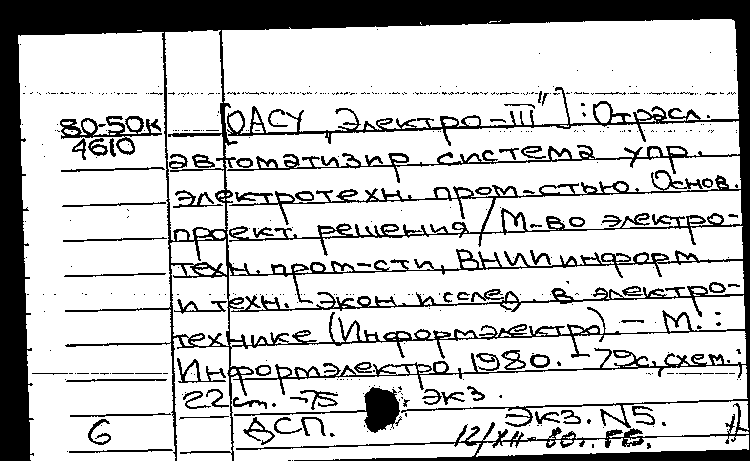 80-50к [ОАСУ „Электро-III"] : Отрасл.
4610
автоматизир. система упр.
электротехн. пром-стью. Основ.
проект. решения / М-во электро-
техн. пром-сти, ВНИИ информ.
и техн.-экон. исслед. в электро-
технике (Информэлектро). - М.:
Информэлектро, 1980. - 79с., схем.;
22 см. -75 экз.
6 ДСП. Экз. N5.
12/XII-80г.